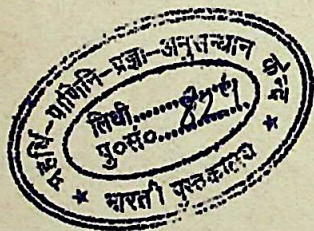 महर्षि-पाणिनि-प्रज्ञा-अनुसन्धान केन्द्र
तिथी..........
पु०सं०.........
* भारती पुस्तकालय *